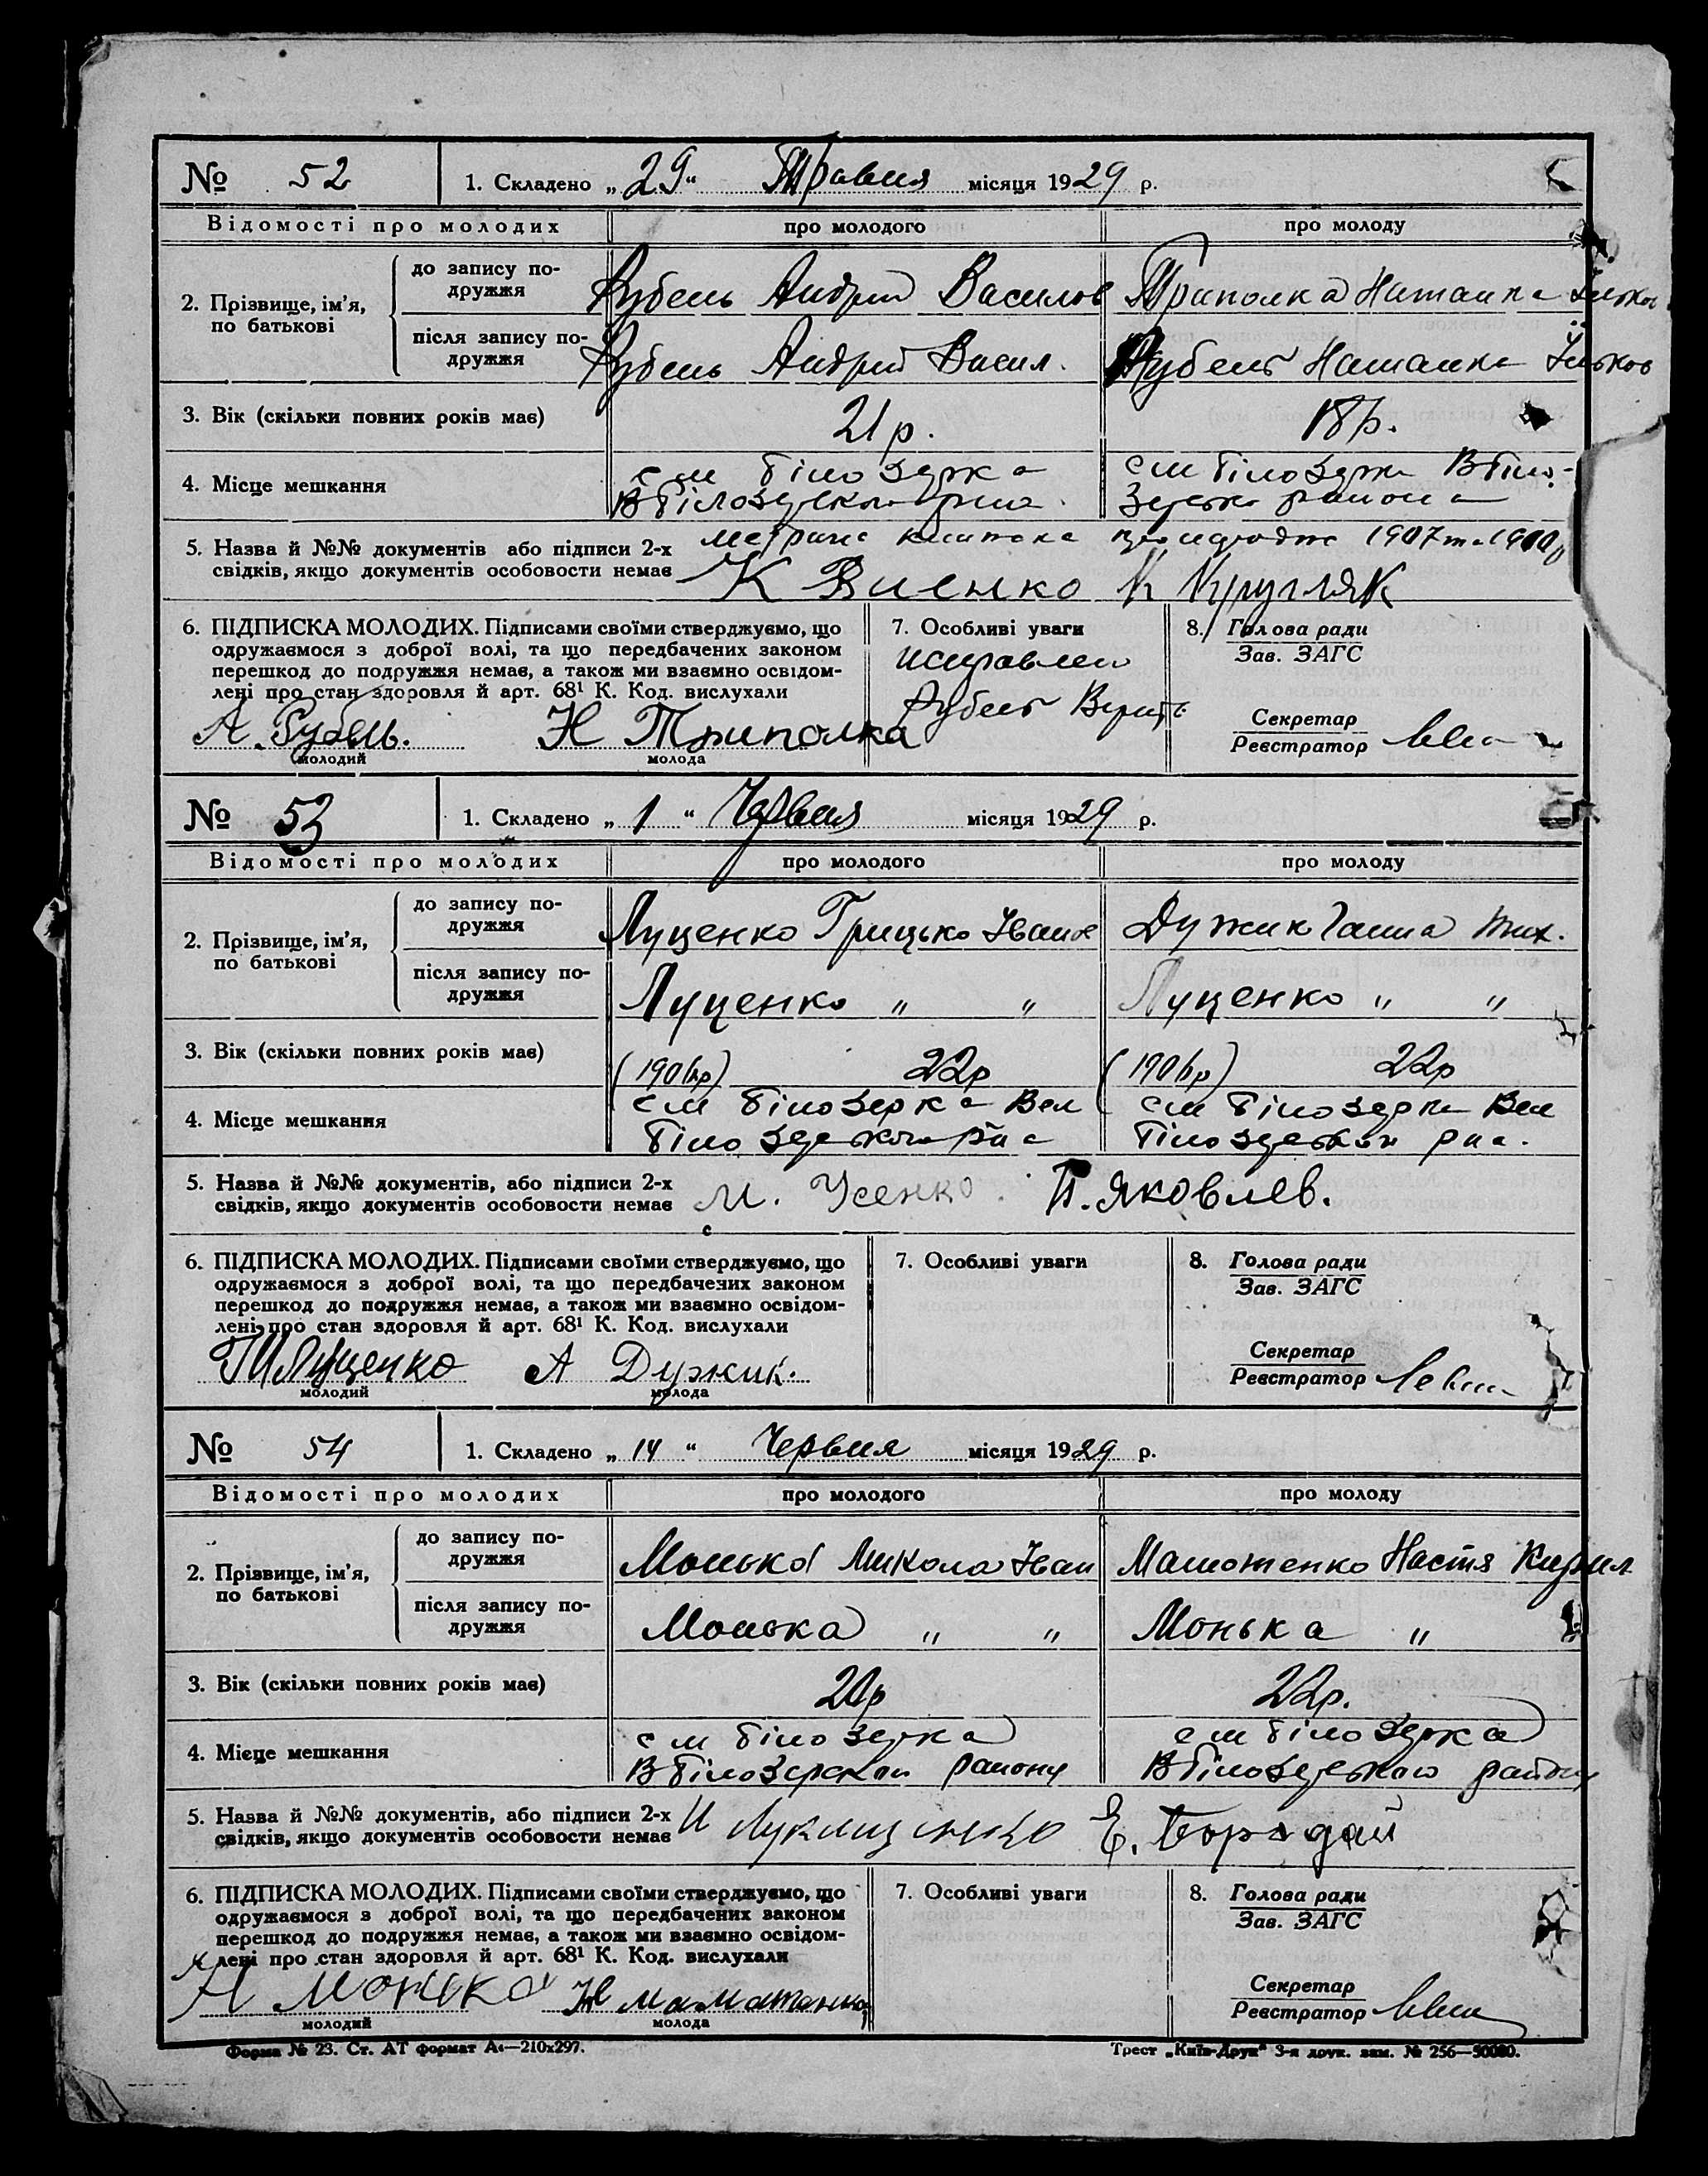 № 52 1. Складено „29“ Травня місяця 1929 р.
Відомості про молодих про молодого про молоду
2. Прізвище, ім’я, по батькові
до запису подружжя Рубель Андрій Василов Триполка Наталка Ільков
після запису подружжя Рубель Андрій Васил. Рубель Наталка Ільков
3. Вік (скільки повних років має) 21 р. 18 р.
4. Місце мешкання см Білозерка см Білозерка В Біло-
В Білозерськ зерськ района
5. Назва й №№ документів або підписи 2-х метрична книжка 1907
свідків, якщо документів особовости немає К Кругляк
6. ПІДПИСКА МОЛОДИХ. Підписами своїми стверджуємо, що 7. Особливі уваги 8. Голова ради
одружаємося з доброї волі, та що передбачених законом Зав. ЗАГС
перешкод до подружжя немає, а також ми взаємно освідом-
лені про стан здоровля й арт. 68¹ К. Код. вислухали
исправлен
Рубель Верить
Секретар
Реєстратор
А. Рубель. Н Триполка
молодий молода
№ 53 1. Складено „1“ Червня місяця 1929 р.
Відомості про молодих про молодого про молоду
2. Прізвище, ім’я, по батькові
до запису подружжя Луценко Грицько Іванов Дужик Ганна Тих.
після запису подружжя Луценко „ „ Луценко „ „
3. Вік (скільки повних років має) (1906р) 22р (1906р) 22р
4. Місце мешкання см Білозерка Вел см Білозерка Вел
Білозерськ Білозерськ
5. Назва й №№ документів, або підписи 2-х М. Усенко. П. Яковлев.
свідків, якщо документів особовости немає
6. ПІДПИСКА МОЛОДИХ. Підписами своїми стверджуємо, що 7. Особливі уваги 8. Голова ради
одружаємося з доброї волі, та що передбачених законом Зав. ЗАГС
перешкод до подружжя немає, а також ми взаємно освідом-
лені про стан здоровля й арт. 68¹ К. Код. вислухали
Секретар
Реєстратор
Луценко А Дужик.
молодий молода
№ 54 1. Складено „14“ Червня місяця 1929 р.
Відомості про молодих про молодого про молоду
2. Прізвище, ім’я, по батькові
до запису подружжя Монька Микола Іван Настя Кирил
після запису подружжя Монька „ „ Монька „ „
3. Вік (скільки повних років має) 22р.
4. Місце мешкання см Білозерка см Білозерка
В Білозерськой району В Білозерського району
5. Назва й №№ документів, або підписи 2-х Е. Борадай
свідків, якщо документів особовости немає
6. ПІДПИСКА МОЛОДИХ. Підписами своїми стверджуємо, що 7. Особливі уваги 8. Голова ради
одружаємося з доброї волі, та що передбачених законом Зав. ЗАГС
перешкод до подружжя немає, а також ми взаємно освідом-
лені про стан здоровля й арт. 68¹ К. Код. вислухали
Секретар
Реєстратор
Монька
молодий молода
Форма № 23. Ст. АТ формат А4—210х297. Трест „Київ-Друк“ 3-я друк. зам. № 256—50000.